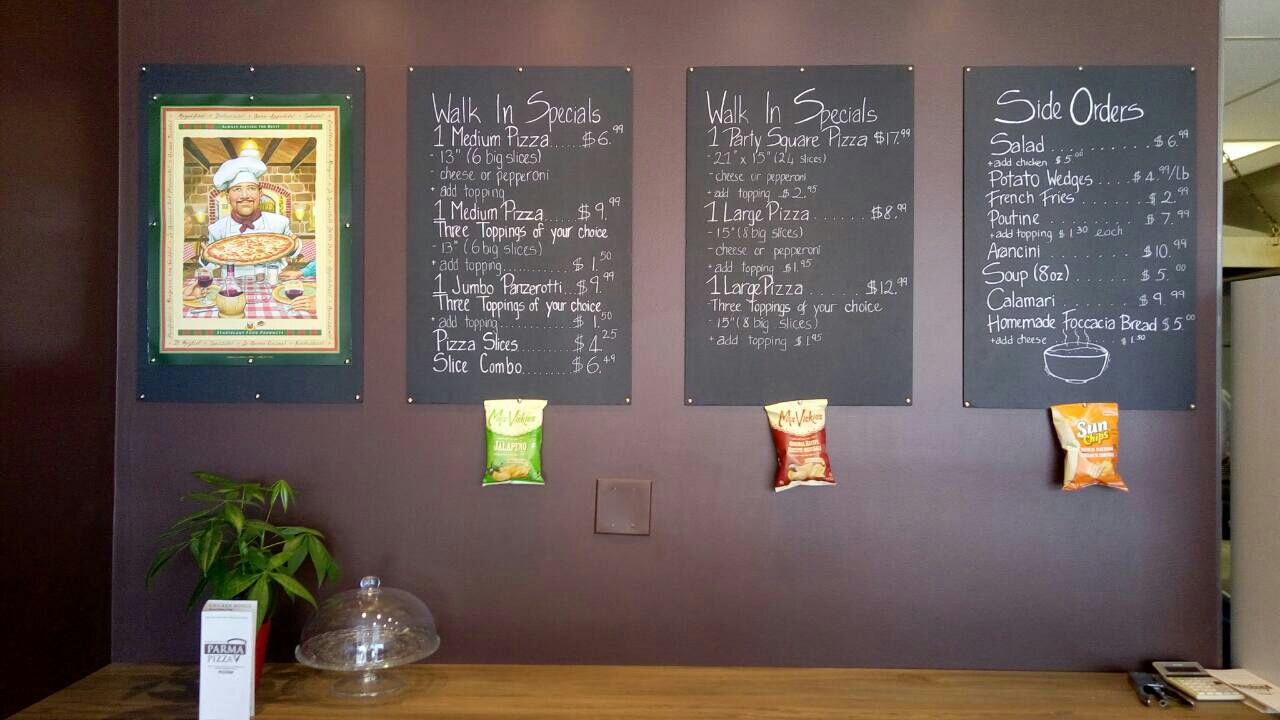 ALWAYS SERVING THE BEST!
STANISLAUS FOOD PRODUCTS
Walk In Specials
1 Medium Pizza......$6.99
- 13" (6 big slices)
- cheese or pepperoni
+ add topping
1 Medium Pizza......$9.99
Three Toppings of your choice
- 13" (6 big slices)
+ add topping............$1.50
1 Jumbo Panzerotti..$9.99
Three Toppings of your choice
+ add topping............$1.50
Pizza Slices.........$4.25
Slice Combo.......$6.49
Walk In Specials
1 Party Square Pizza $17.99
- 21" x 15" (24 slices)
- cheese or pepperoni
+ add topping $2.95
1 Large Pizza.......$8.99
- 15" (8 big slices)
- cheese or pepperoni
+ add topping $1.95
1 Large Pizza.......$12.99
Three Toppings of your choice
- 15" (8 big slices)
+ add topping $1.95
Side Orders
Salad..........$6.99
+add chicken $5.00
Potato Wedges....$4.99/lb
French Fries.......$2.99
Poutine..........$7.99
+add topping $1.30 each
Arancini..........$10.99
Soup (8oz)........$5.00
Calamari..........$9.99
Homemade Foccacia Bread $5.00
+add cheese......$1.50
Miss Vickie's
JALAPEÑO
Miss Vickie's
ORIGINAL RECIPE
Sun
Chips
PARMA
PIZZA